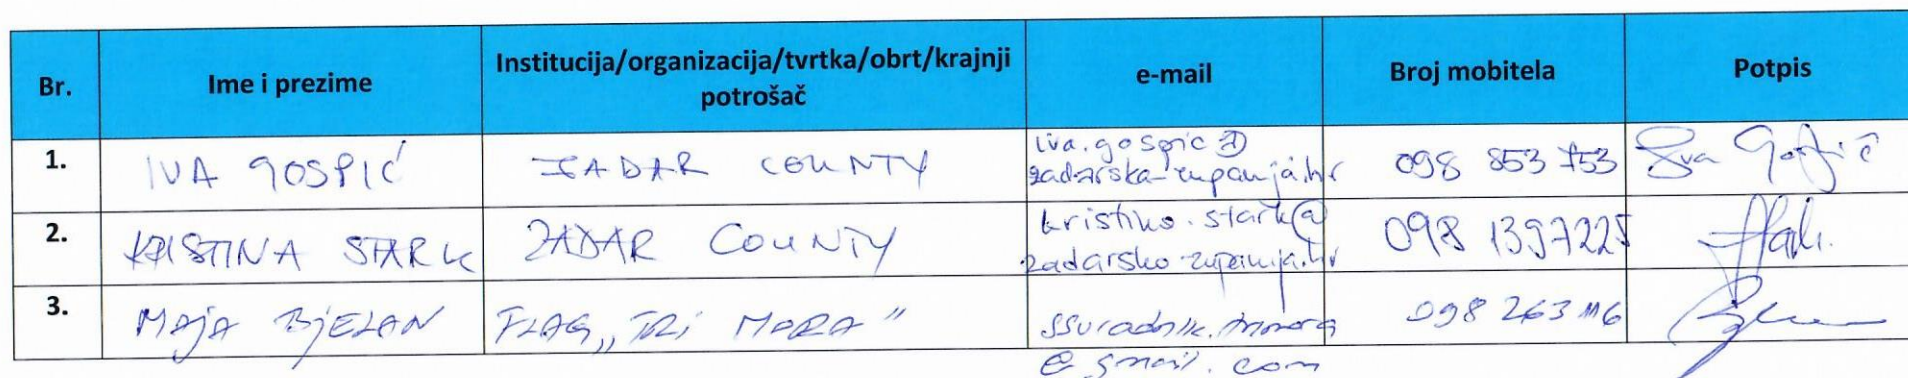 Br. Ime i prezime Institucija/organizacija/tvrtka/obrt/krajnji potrošač e-mail Broj mobitela Potpis
1. IVA GOSPIĆ ZADAR COUNTY iva.gospic@ zadarska-zupanija.hr 098 853 753 Iva Gospić
2. KRISTINA STARK ZADAR COUNTY kristina.stark@ zadarska-zupanija.hr 098 1397225
3. MAJA BJELAN FLAG „TRI MORA" ssuradnik.trimora @gmail.com 098 263 116